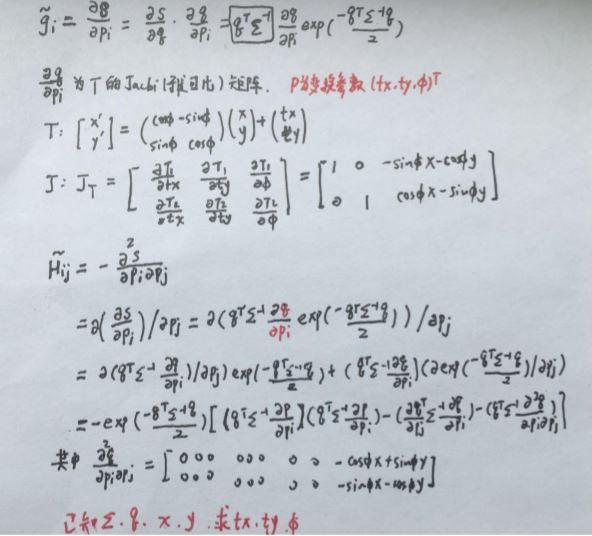 g̃i = ∂g/∂pi = ∂s/∂q · ∂q/∂pi = qᵀΣ⁻¹ ∂q/∂pi exp(-qᵀΣ⁻¹q/2)
∂q/∂pi 为T的Jacbi(雅可比)矩阵. P为变换参数(tx.ty.ϕ)ᵀ
T: [x' y'] = (cosϕ -sinϕ sinϕ cosϕ)(x y)+(tx ty)
J: J_T = [∂T₁/∂tx ∂T₁/∂ty ∂T₁/∂ϕ ∂T₂/∂tx ∂T₂/∂ty ∂T₂/∂ϕ] = [1 0 -sinϕx-cosϕy 0 1 cosϕx-sinϕy]
H̃ij = - ∂²s/∂pi∂pj
=∂(∂s/∂pi)/∂pj = ∂(qᵀΣ⁻¹ ∂q/∂pi exp(-qᵀΣ⁻¹q/2))/∂pj
= ∂(qᵀΣ⁻¹ ∂q/∂pi)/∂pj) exp(-qᵀΣ⁻¹q/2) + (qᵀΣ⁻¹∂q/∂pi](∂exp(-qᵀΣ⁻¹q/2)/∂pj)
=-exp(-qᵀΣ⁻¹q/2)[(qᵀΣ⁻¹ ∂p/∂pi](qᵀΣ⁻¹ ∂p/∂pi)-(∂qᵀ/∂pj Σ⁻¹ ∂q/∂pi)-(qᵀΣ⁻¹ ∂²q/∂pi∂pj)]
其中 ∂²q/∂pi∂pj = [000 000 0 0 -cosϕx+sinϕy 000 000 0 0 -sinϕx-cosϕy]
已知Σ.q.x.y.求tx.ty.ϕ